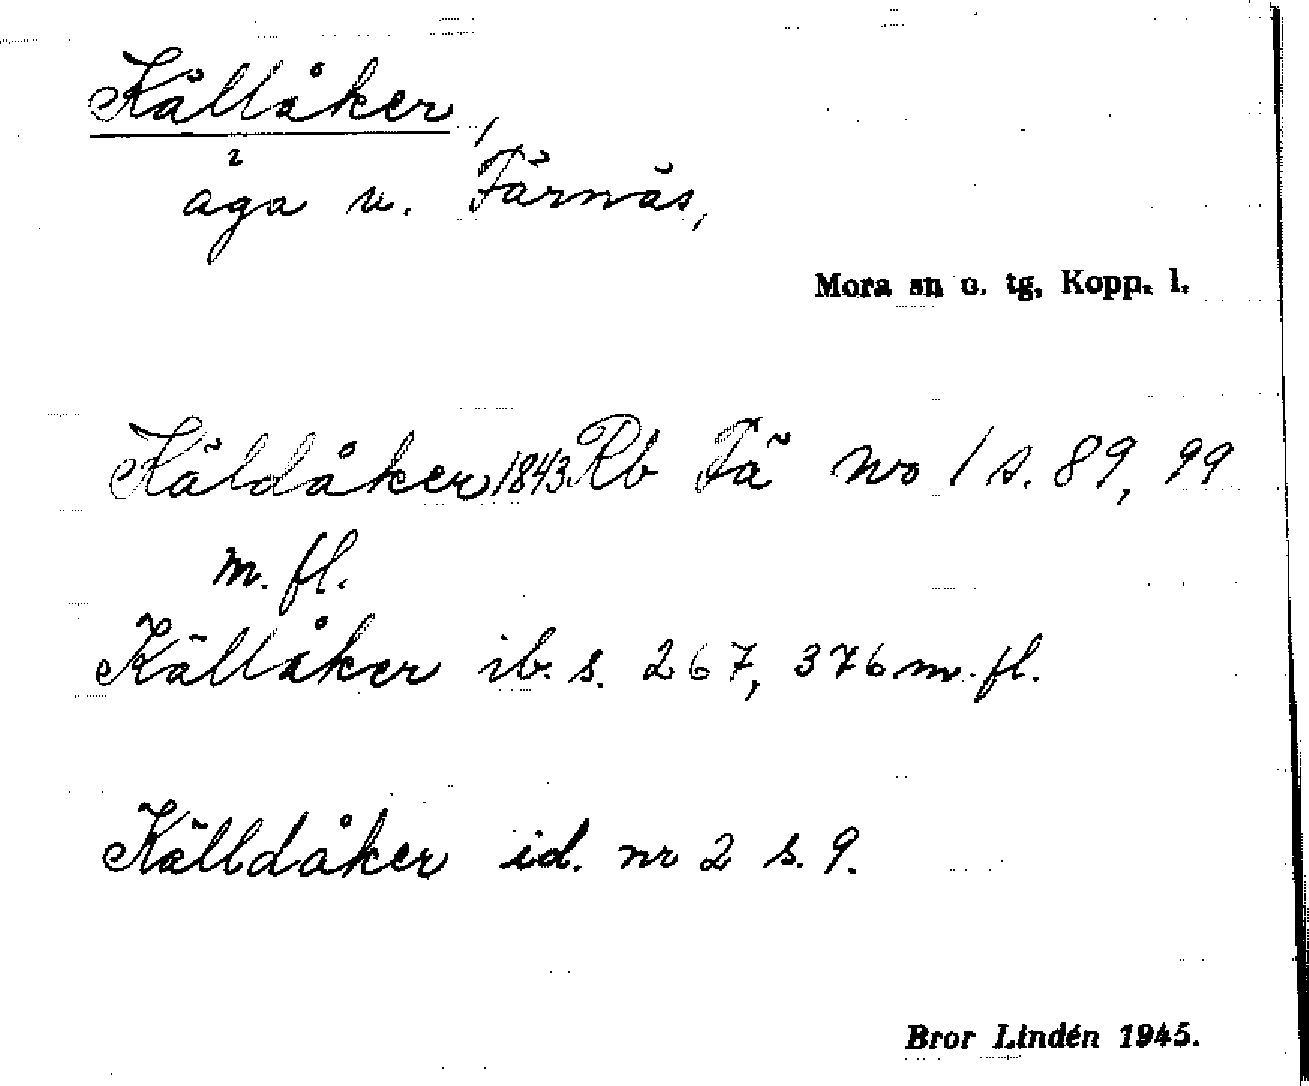 Källåker,
äga v. Färnäs,
Mora sn o. tg, Kopp. l.
Käldåker 1843 Rb Fä no 1 s. 89, 99
m. fl.
Källåker ib. s. 267, 376 m. fl.
Källdåker id. nr 2 s. 9.
Bror Lindén 1945.